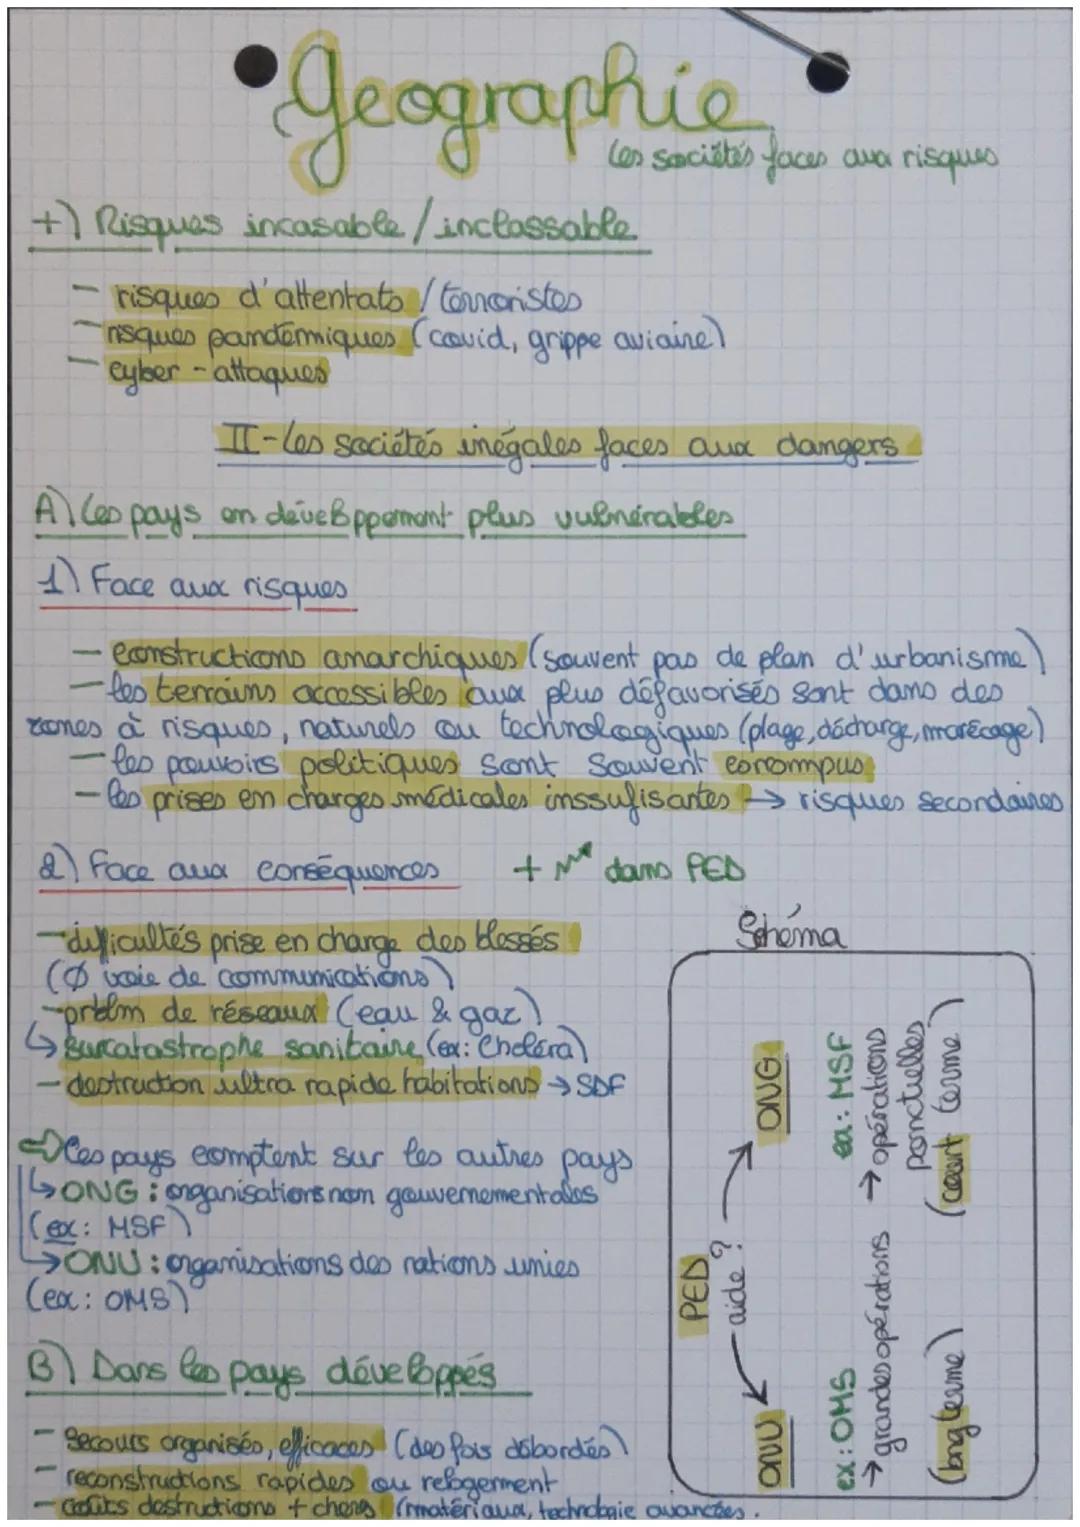 Geographie
les sociétés faces aux risques
+) Risques incasable / inclassable
- risques d'attentats / terroristes
- risques pandémiques (covid, grippe aviaire)
- cyber - attaques
II - Les sociétés inégales faces aux dangers
A) Les pays en développement plus vulnérables
1) Face aux risques
- constructions anarchiques (souvent pas de plan d'urbanisme)
- les terrains accessibles aux plus défavorisés sont dans des
zones à risques, naturels ou technologiques (plage, décharge, marécage)
- les pouvoirs politiques sont souvent corrompus
- les prises en charges médicales inssufisantes → risques secondaires
2) Face aux conséquences
+ dans PED
- difficultés prise en charge des blessés
(Ø voie de communications)
- prblm de réseaux (eau & gaz)
↳ surcatastrophe sanitaire (ex: Choléra)
- destruction ultra rapide habitations → SDF
⇨ Ces pays comptent sur les autres pays
↳ ONG : organisations non gouvernementales
(ex: MSF)
↳ ONU : organisations des nations unies
(ex: OMS)
B) Dans les pays développés
- Secours organisés, efficaces (des fois débordés)
- reconstructions rapides ou relogement
- coûts destructions + chers (matériaux, technologie avancées.
Schéma
PED
aide ?
ONU
ONG
ex : OMS
→ grandes opérations
(long terme)
ex : MSF
→ opérations
ponctuelles
(court terme)